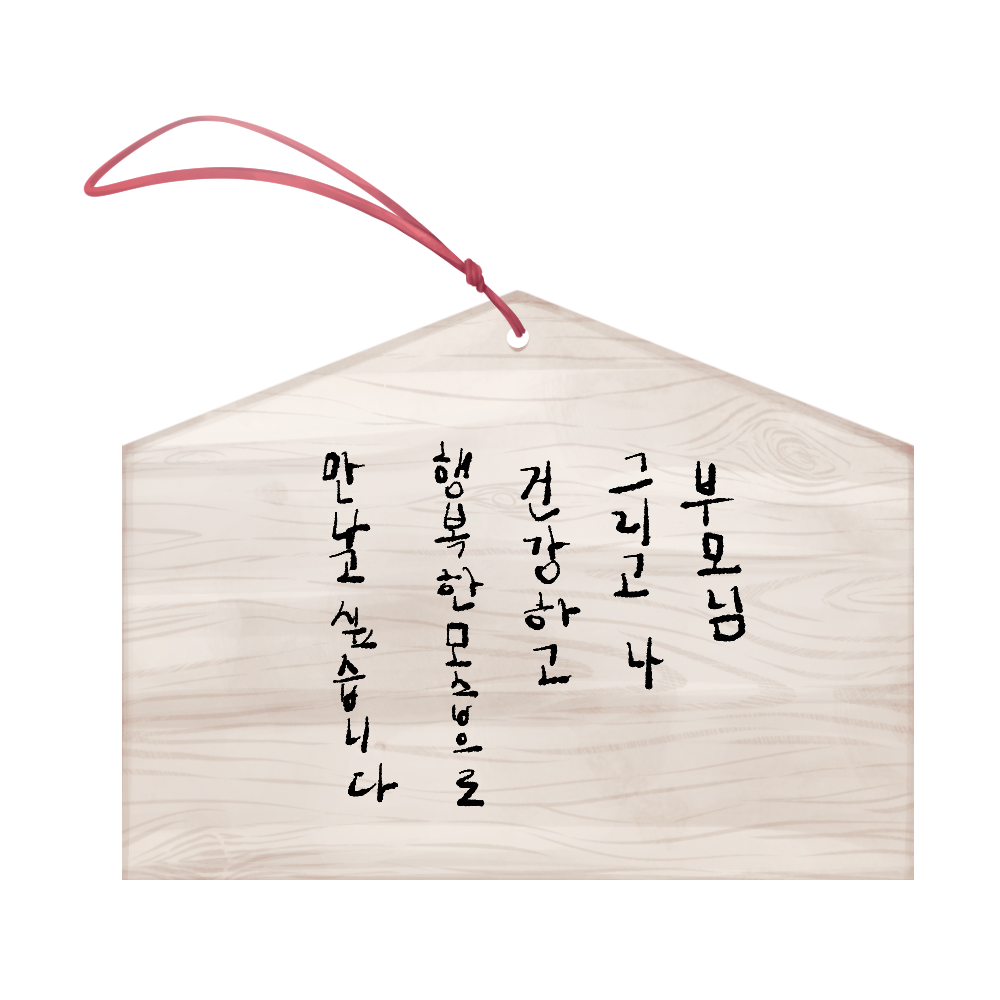 부모님
그리고 나
건강하고
행복한 모습으로
만날고 싶습니다